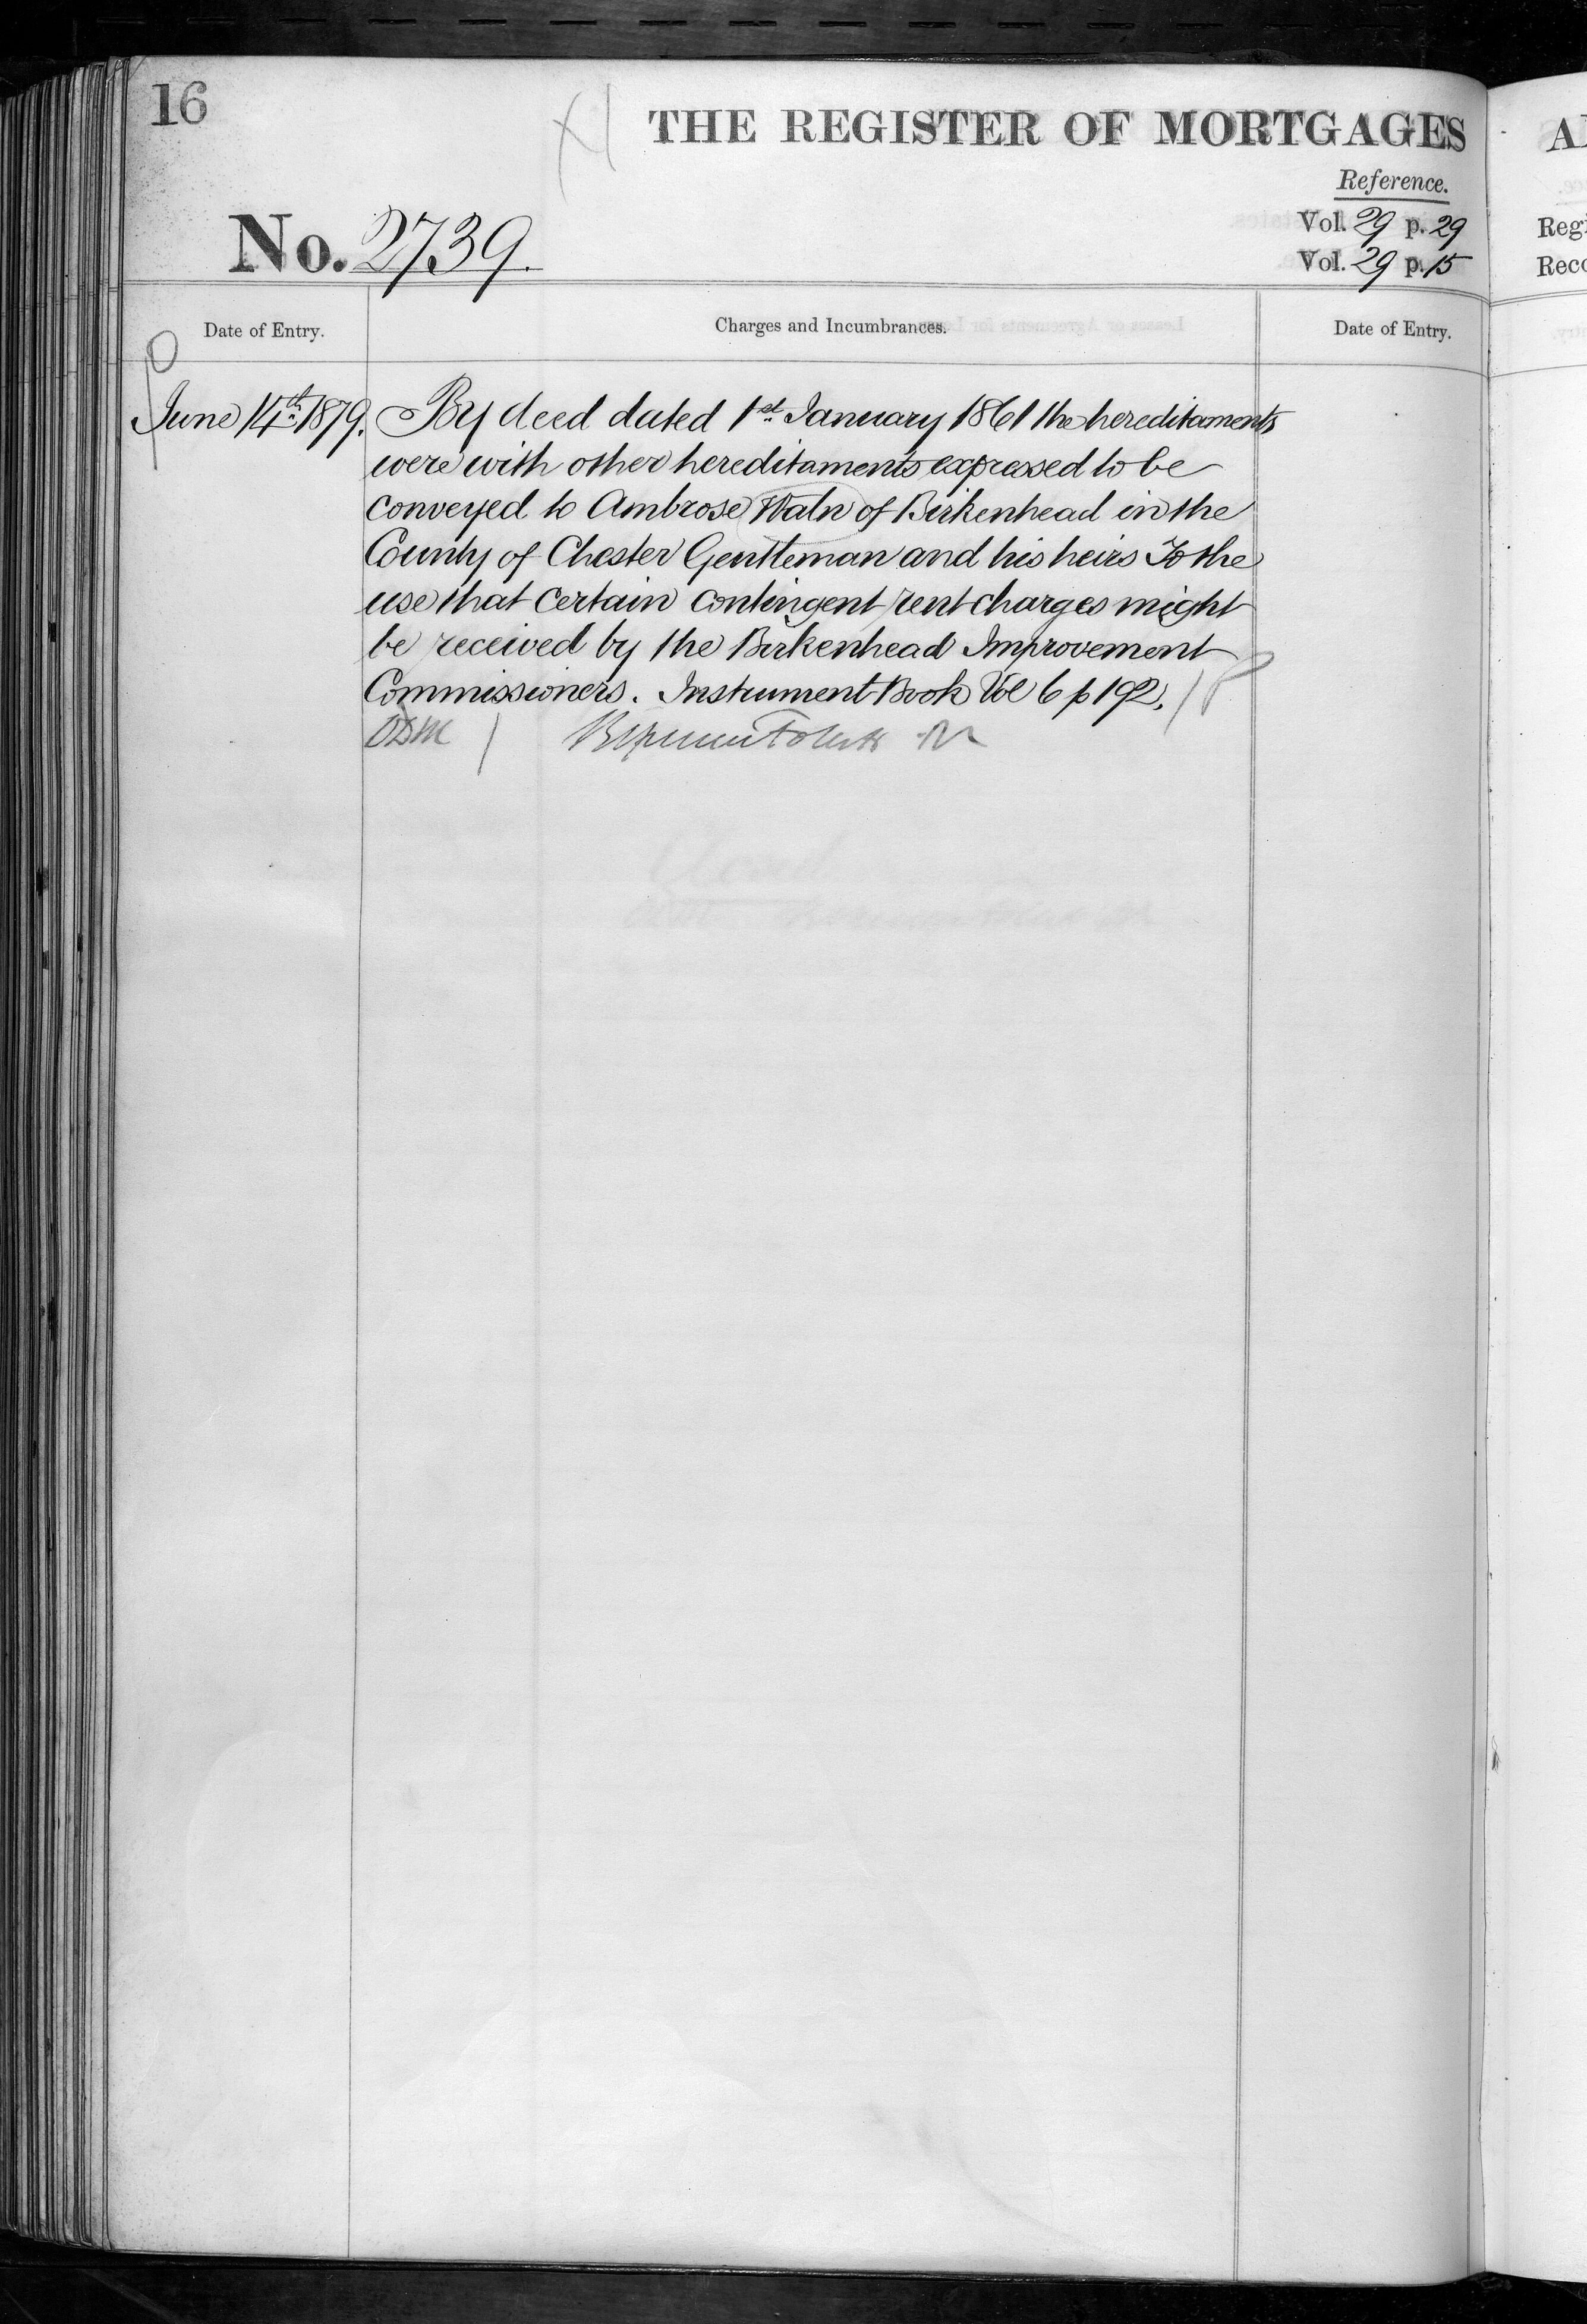 16
THE REGISTER OF MORTGAGES
Reference.
No. 2739.
Vol. 29 p. 29
Vol. 29 p. 15
Date of Entry.
Charges and Incumbrances.
Date of Entry.
June 14th 1879.
By deed dated 1st January 1861 the hereditaments
were with other hereditaments expressed to be
conveyed to Ambrose Waln of Birkenhead in the
County of Chester Gentleman and his heirs To the
use that certain contingent rent charges might
be received by the Birkenhead Improvement
Commissioners. Instrument Book Vol 6 p 192.